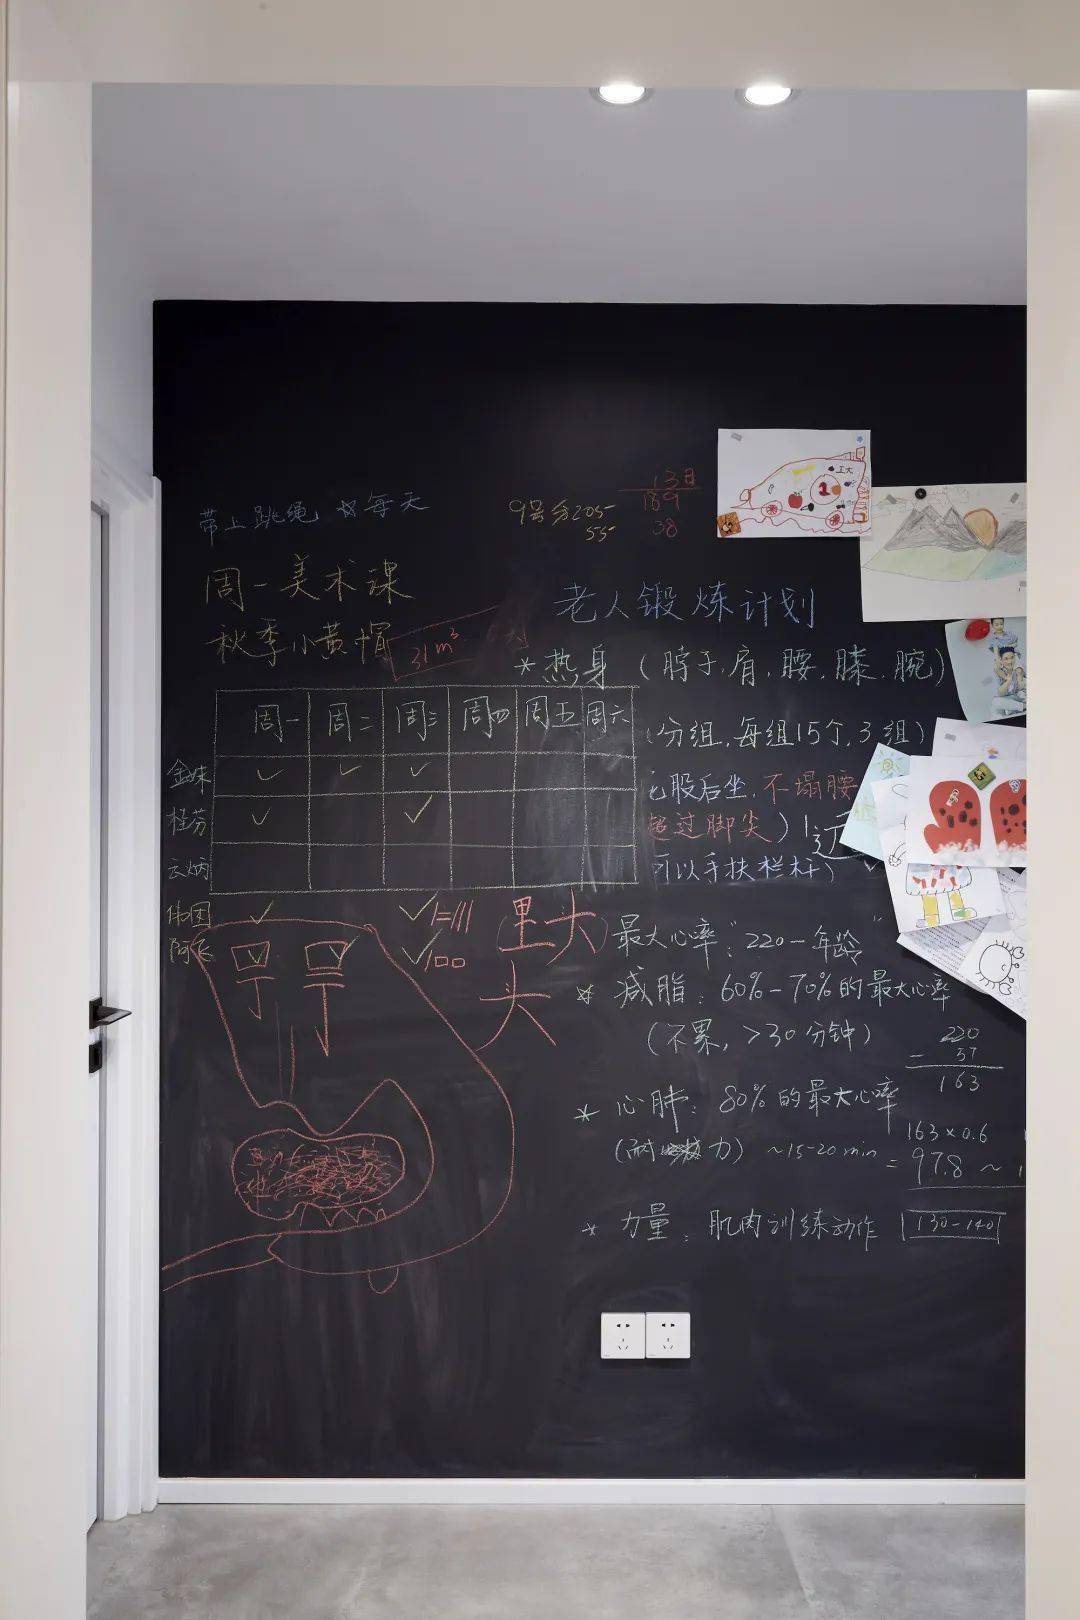 13日
189
38
9号分205
55
带上跳绳 每天
周一美术课
秋季小黄帽
31m³
老人锻炼计划
* 热身 (脖子.肩,腰,膝.腕)
周一 周二 周三 周四 周五 周六
金妹
桂芬
云炳
阿飞
(分组,每组15个,3组)
股后坐,不塌腰
超过脚尖)
可以手扶栏杆)
里头
头
最大心率:"220-年龄"
* 减脂:60%-70%的最大心率
(不累,>30分钟)
220
- 57
163
* 心肺:80%的最大心率
(耐力) ~15-20min
163×0.6
=97.8 ~
* 力量:肌肉训练动作 130-140
工大
1